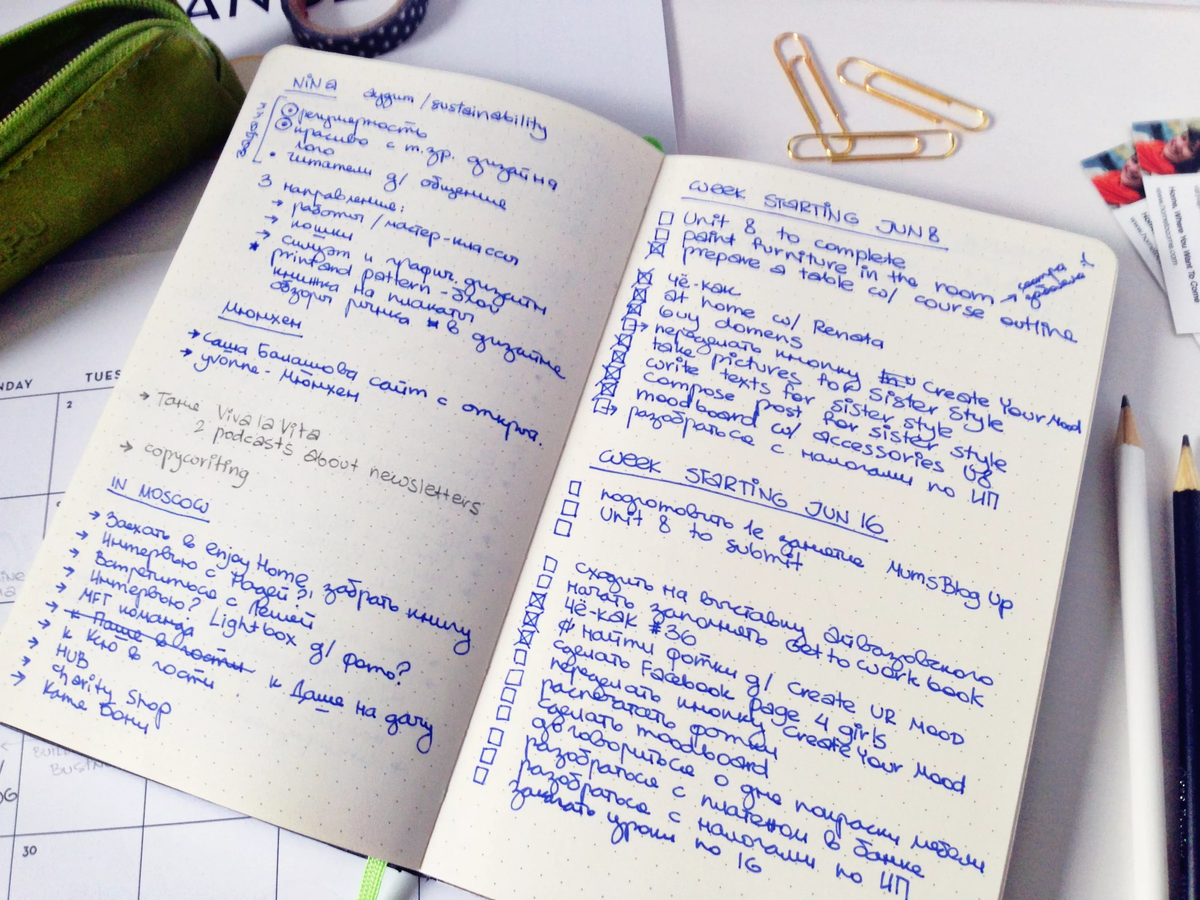 NINA аудит / sustainability
задачи
регулярность
красиво с т.зр. дизайна
лого
• читатели д/ общения
3 направления:
→ работы / мастер-классы
→ кошки
→ силуэт и графич. дизайн
* print and pattern - блог
книжка на плакаты
обзоры рынка в дизайне
Мюнхен
→ Саша Балашова сайт с открыт.
→ Yvonne - Мюнхен
→ Таня Viva la Vita
2 podcasts about newsletters
→ copywriting
IN MOSCOW
→ Заехать в Enjoy Home, забрать книгу
→ Интервью с Надей?!
→ Встретиться с Лёшей
→ Интервью? Lightbox д/ фото?
→ MFT команда
→ к Паше в гости к Даше на дачу
→ к Кью в гости
→ HUB
→ charity shop
→ Кате Бону
WEEK STARTING JUN 8
Unit 8 to complete
paint furniture in the room →
prepare a table w/ course outline
чё-как
at home w/ Renata
buy domens
переделать кнопку Create Your Mood
take pictures for Sister Style
write texts for sister style
compose post for sister style
moodboard w/ accessories U8
разобраться с налогами по ИП
WEEK STARTING JUN 16
подготовить 1е занятие MumsBlog Up
Unit 8 to submit
сходить на выставку Айвазовского
начать заполнять Get to Work book
Чё-КАК #36
найти фотки д/ Create UR MOOD
сделать Facebook Page 4 girls
переделать кнопку Create Your Mood
распечатать фотки
сделать moodboard
договориться о дне покраски мебели
разобраться с платежом в банке
разобраться с налогами по ИП
заказать уроки по 16
NDAY
TUES
2
30
Home, Where You Want To Come